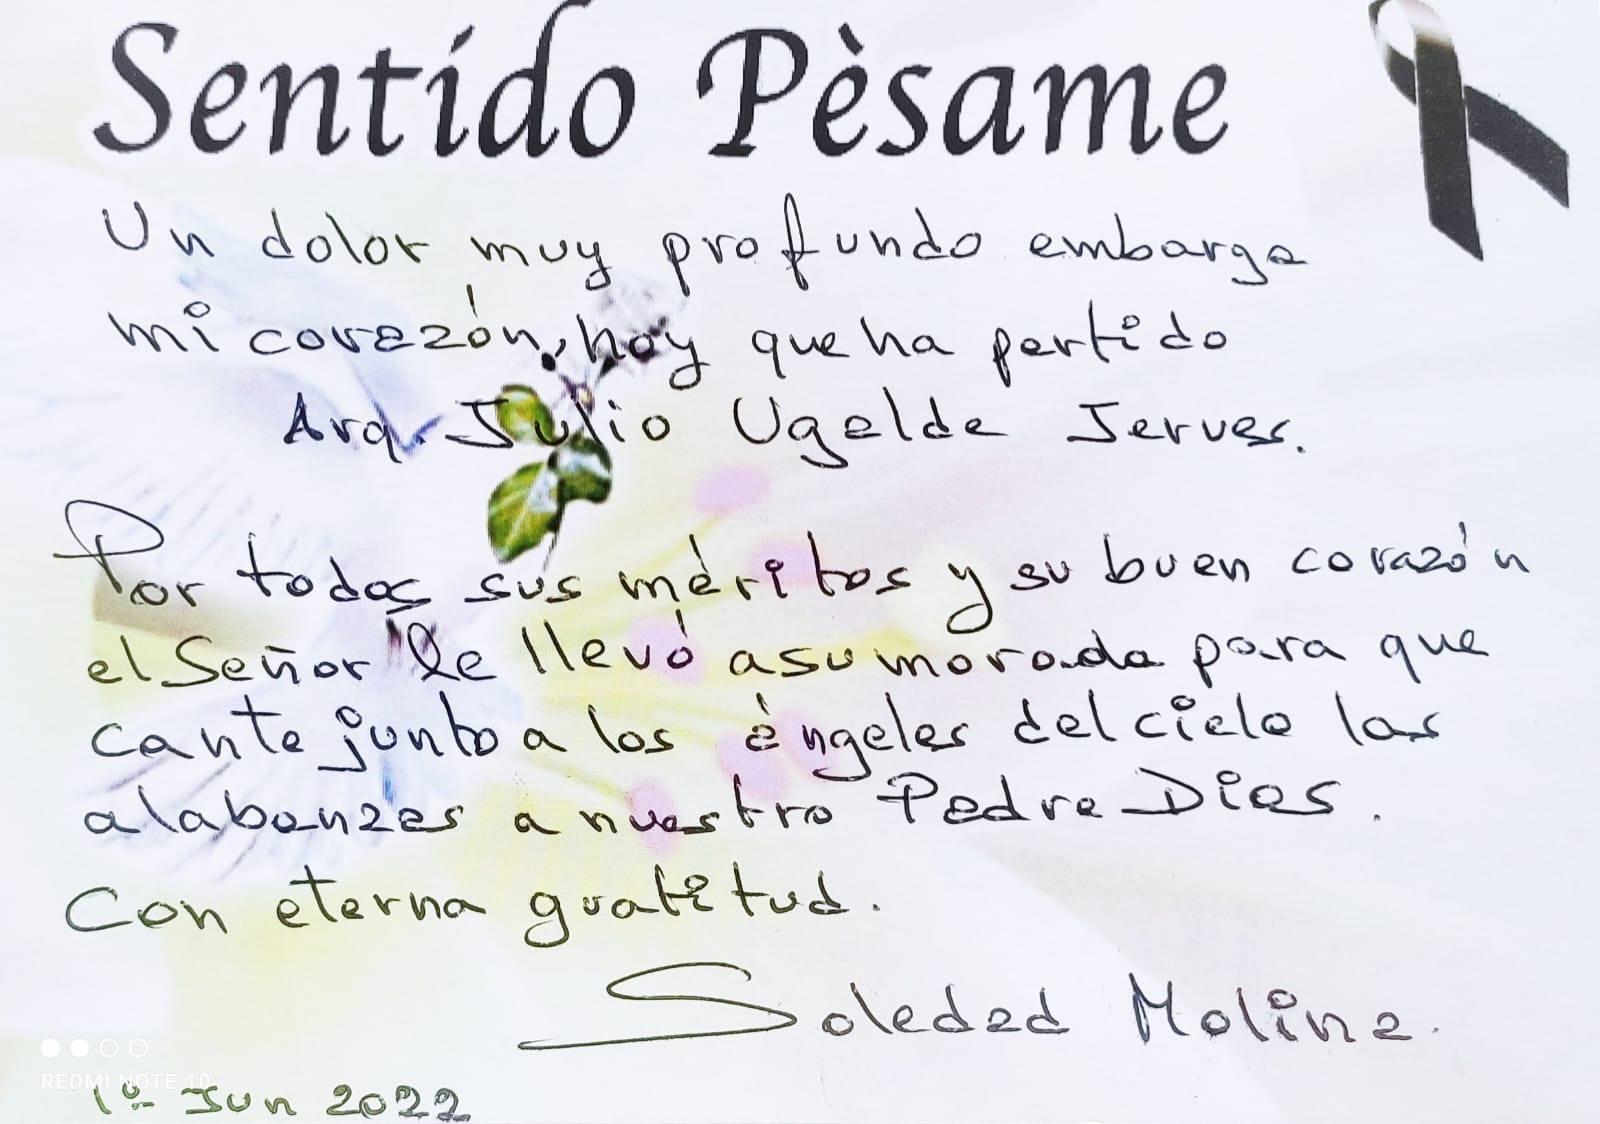 Sentido Pèsame
Un dolor muy profundo embarga
mi corazón, hoy que ha partido
Arq. Julio Ugalde Jerves.
Por todos sus méritos y su buen corazón
el Señor le llevó a su morada para que
cante junto a los ángeles del cielo las
alabanzas a nuestro Padre Dios.
Con eterna gratitud.
Soledad Molina.
REDMI NOTE 10
1º Jun 2022